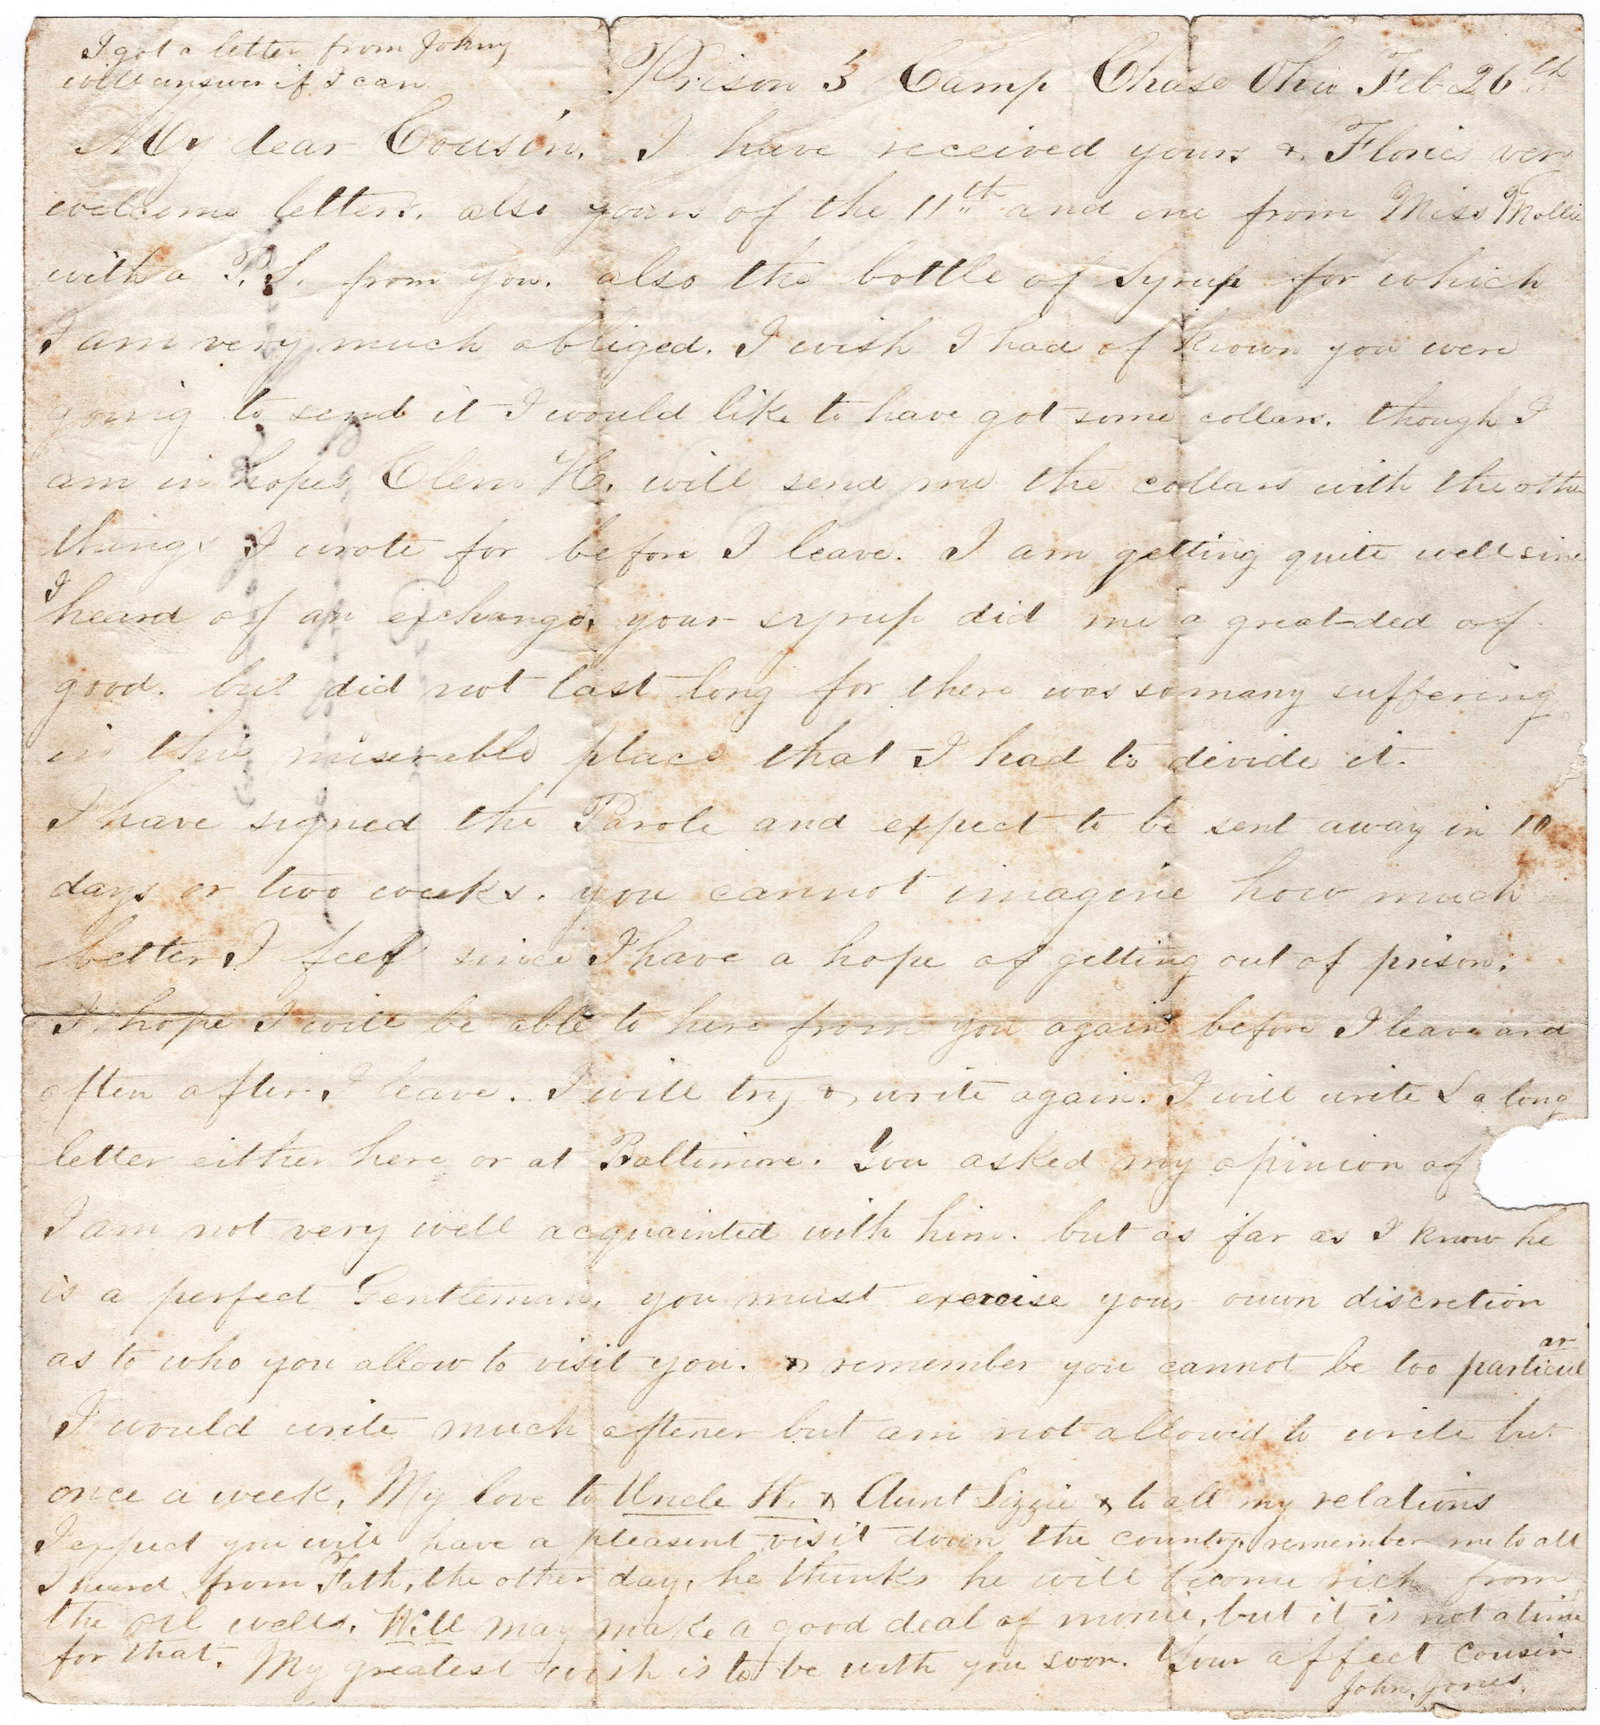 I got a letter from Johny
will answer if I can
Prison 3 Camp Chase Ohio Feb 26th
My dear Cousin, I have received yours & Flories very
welcome letters. also yours of the 11th and one from Miss Mollie
with a P.S. from you. also the bottle of Syrup for which
I am very much obliged. I wish I had of known you were
going to send it I would like to have got some collars. though I
am in hopes Clem H. will send me the collars with the other
things I wrote for before I leave. I am getting quite well sine
I heard of an exchange, your syrup did me a great ded of
good. but did not last long for there was so many suffering
in this miserable place that I had to divide it.
I have signed the Parole and expect to be sent away in 10
days or two weeks. you cannot imagine how much
better I feel since I have a hope of getting out of prison.
I hope I will be able to here from you again before I leave and
often after I leave. I will try & write again. I will write a long
letter either here or at Baltimore. You asked my opinion of
I am not very well acquainted with him. but as far as I know he
is a perfect Gentleman, you must exercise your ouwn discretion
as to who you allow to visit you. & remember you cannot be too particular
I would write much oftener but am not allowed to write but
once a week, My love to Uncle H. & Aunt Lizzie & to all my relations
I expect you will have a pleasent visit down the country, remember me to all
I heard from Fath, the other day, he thinks he will become rich from
the oil wells. Will may make a good deal of monie, but it is not a time
for that. My greatest wish is to be with you soon. Your affect cousin
John, Jones,